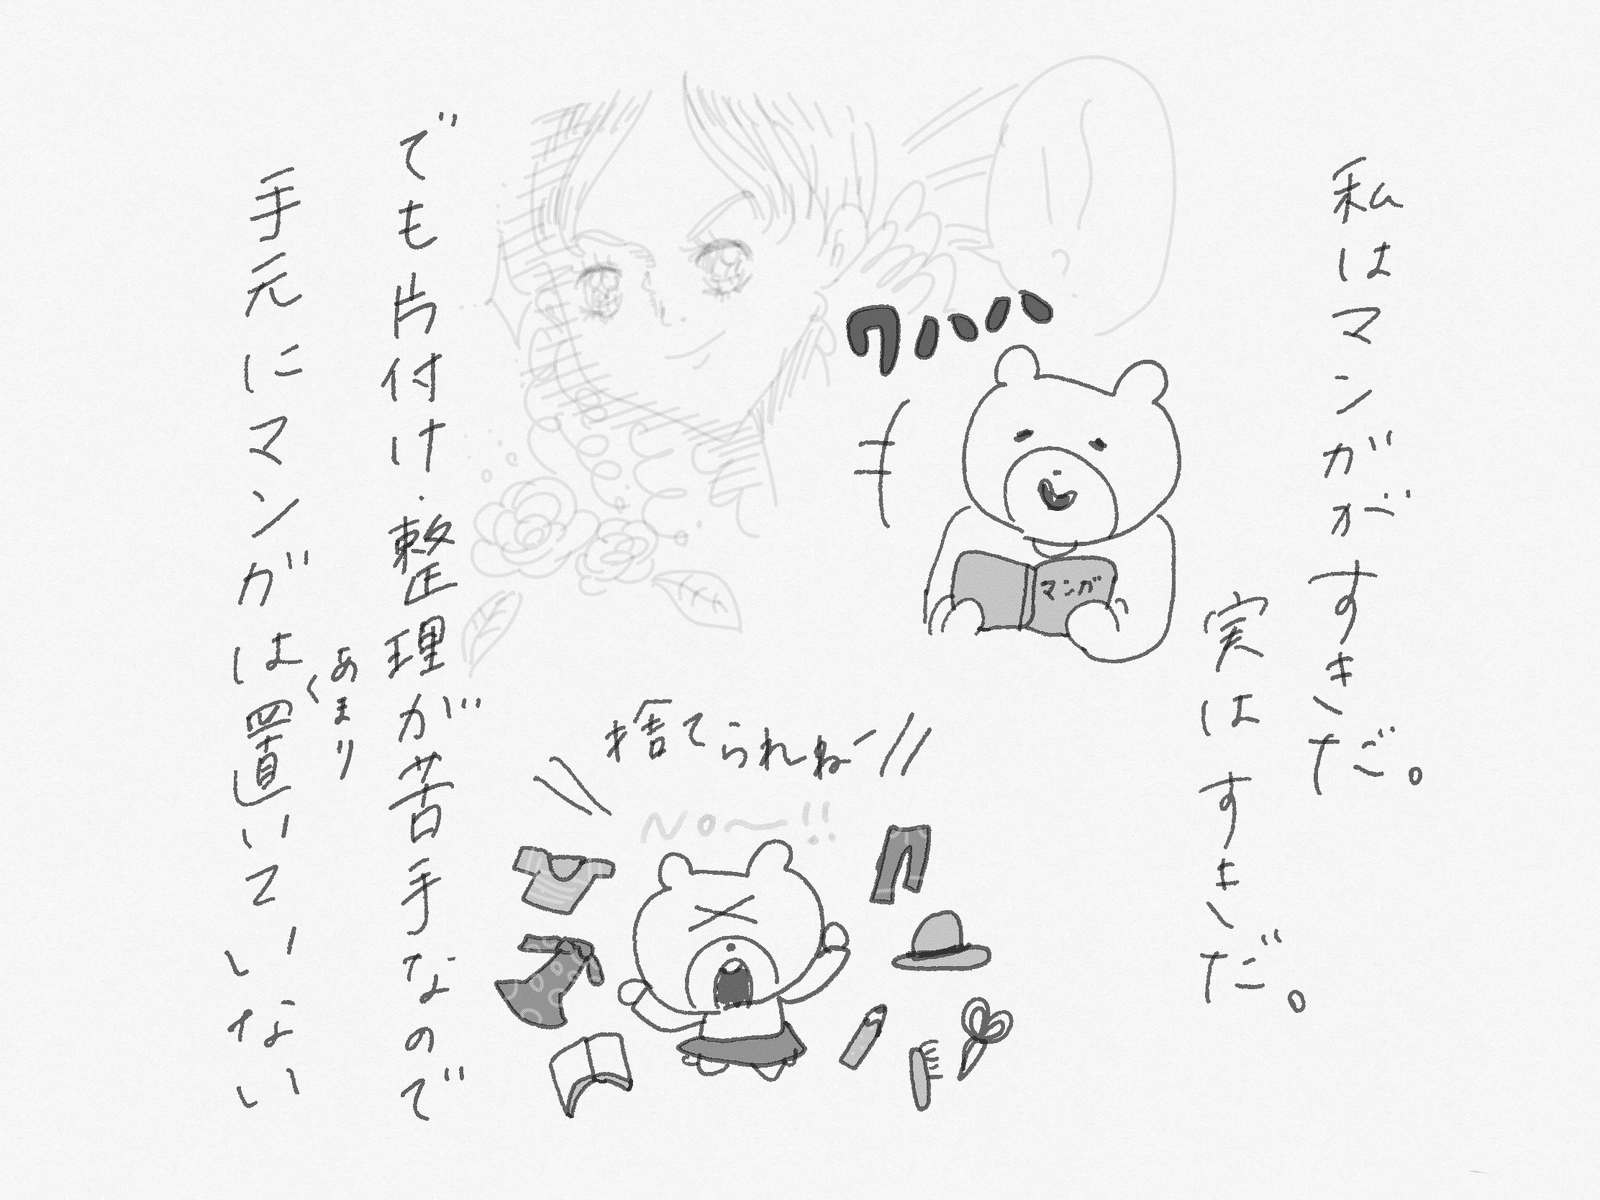 私はマンガがすきだ。
実はすきだ。
ワハハハ
マンガ
捨てられねー
NO〜!!
でも片付け・整理が苦手なので
手元にマンガはあまり置いていない